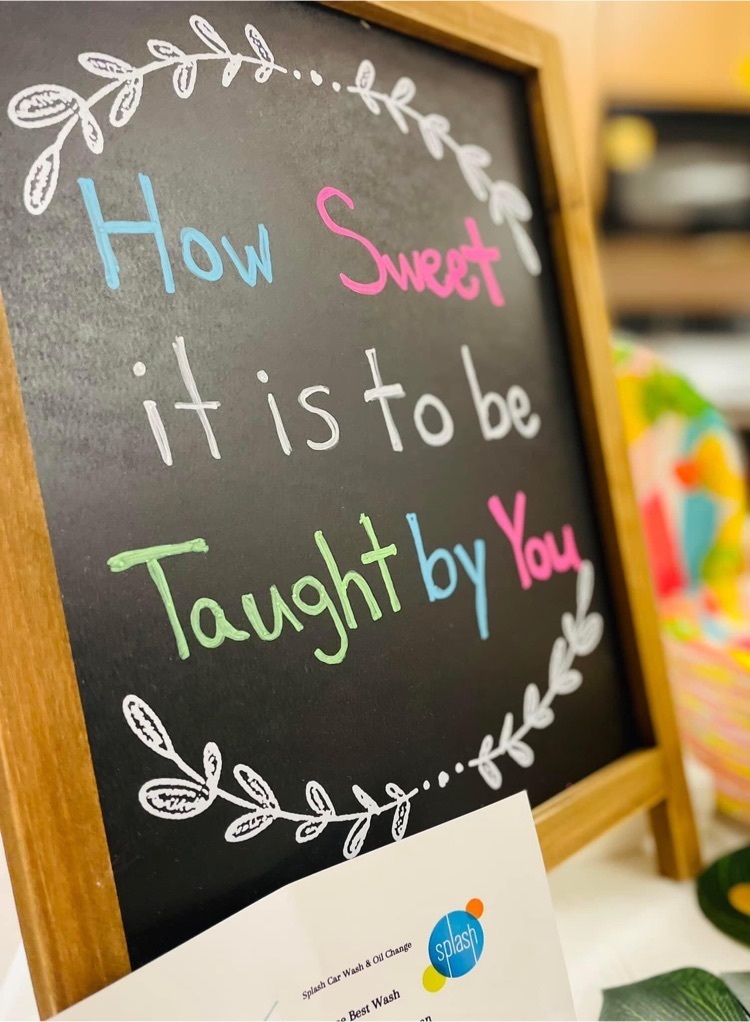 How Sweet
it is to be
Taught by You
splash
Splash Car Wash & Oil Change
Best Wash